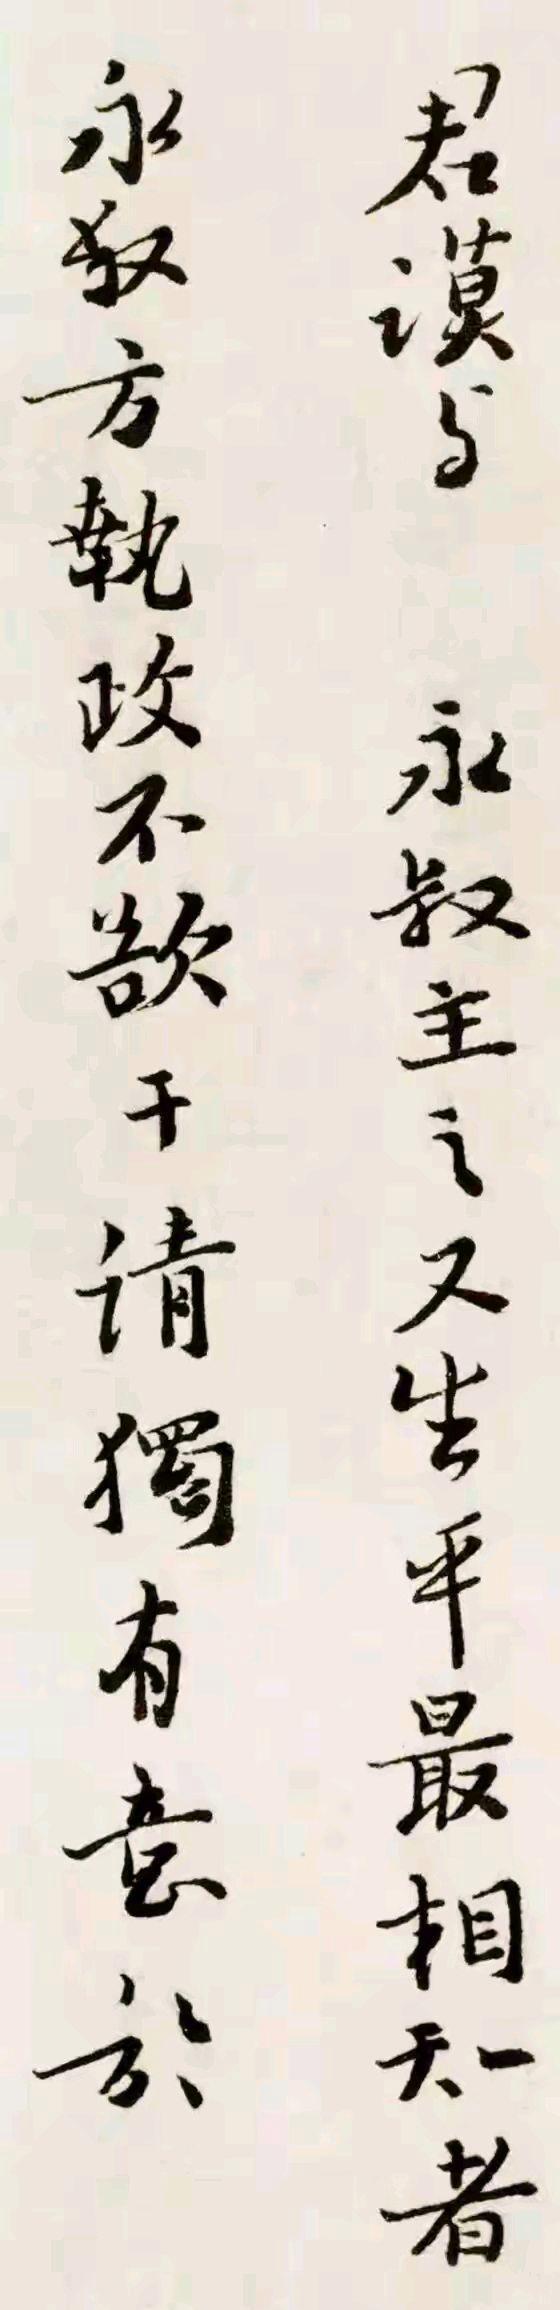 君謨与 永叔主之又生平最相知者
永叔方執政不欲干請獨有意於